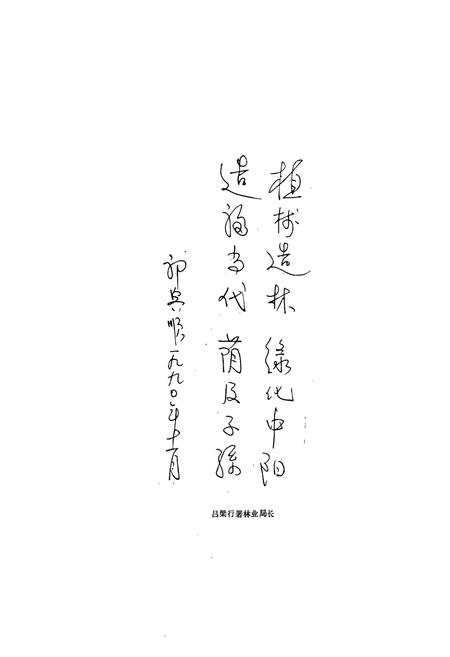 植树造林 绿化中阳
造福当代 荫及子孙
郭兴顺一九九〇年十一月
吕梁行署林业局长